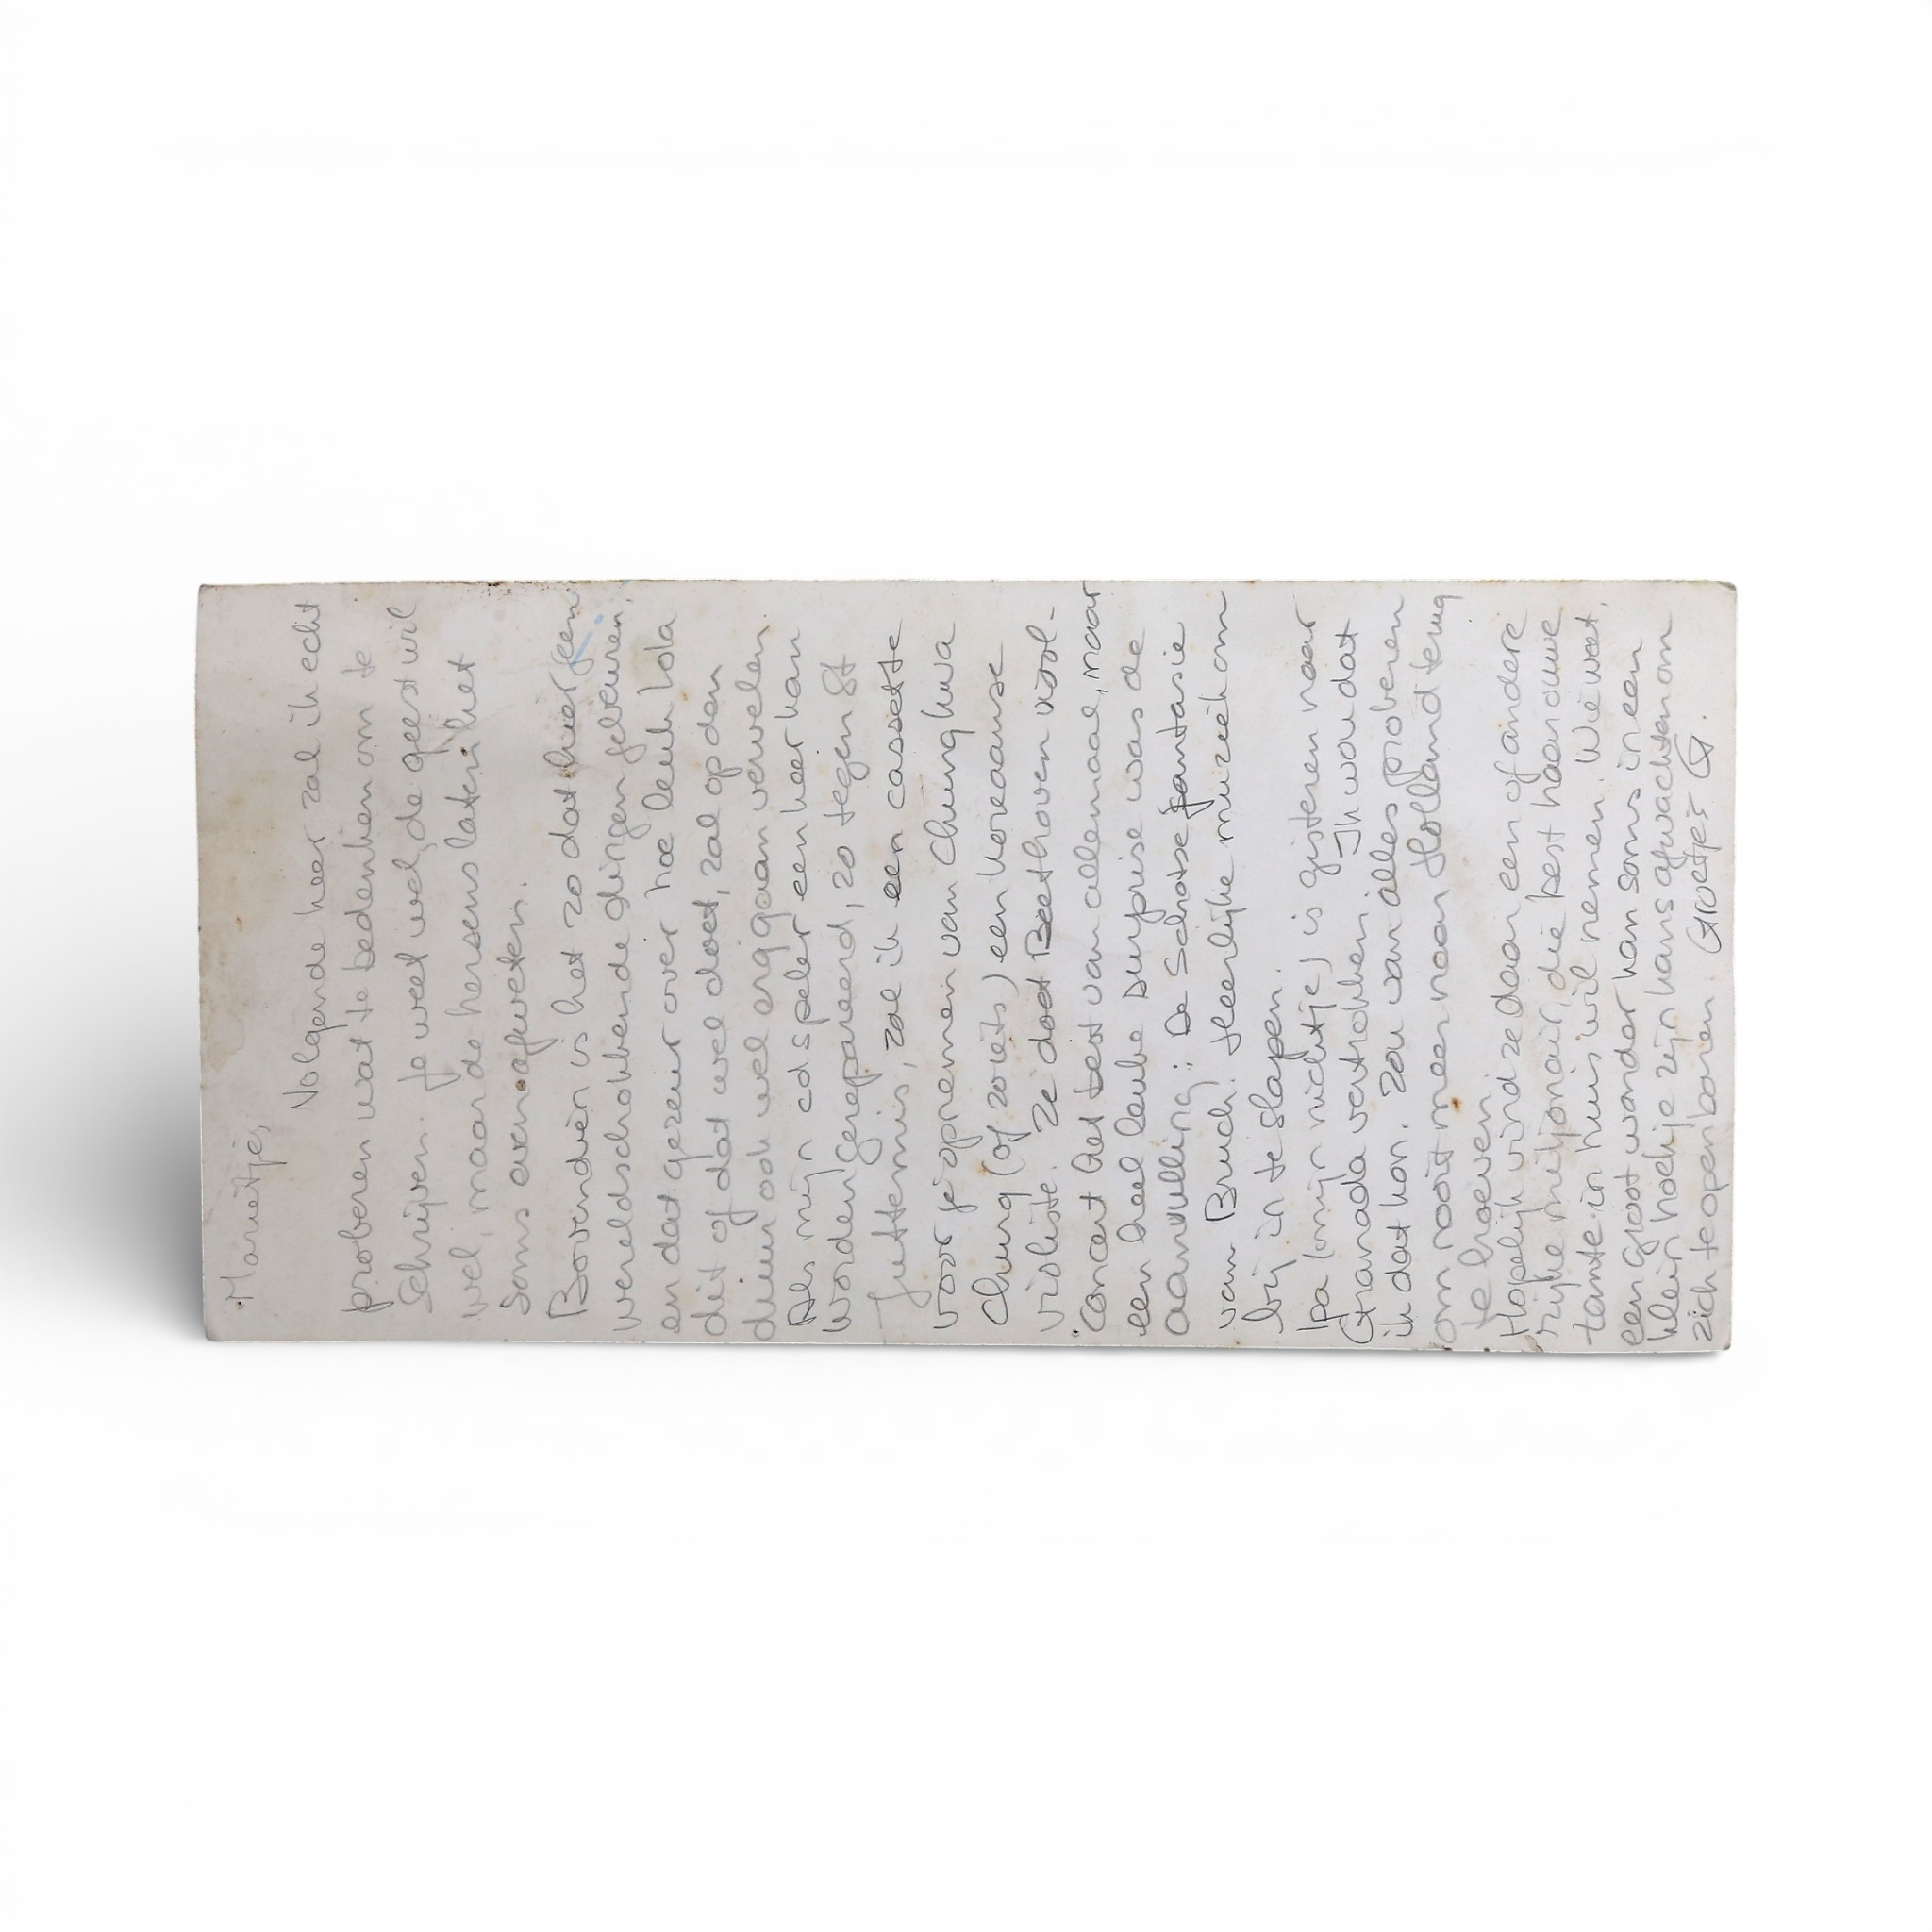 Marietje,
Volgende keer zal ik echt
proberen wat te bedenken om te
schrijven. Je weet wel, de geest wil
wel, maar de hersens laten het
soms even afweten.
Bovendien is het zo dat hier geen
wereldschokkende dingen gebeuren,
en dat gezeur over hoe leuk Lola
dit of dat wel doet, zal op den
duur ook wel erg gaan vervelen.
Als mijn cd speler een keer kan
worden gerepareerd, zo tegen St
Juttemis, zal ik een cassette
voor je opnemen van Chung hwa
Chung (of zoiets) een koreaanse
violiste. Ze doet Beethoven viool-
concert het best van allemaal, maar
een heel leuke surprise was de
aanvulling: De Schotse fantasie
van Bruch. Heerlijke muziek om
bij in te slapen.
Pa (mijn nichtje) is gisteren naar
Granada vertrokken. Ik wou dat
ik dat kon. Zou van alles proberen
om nooit meer naar Holland terug
te hoeven.
Hopelijk vind ze daar een of andere
rijke miljonair, die best haar ouwe
tante in huis wil nemen. Wie weet,
een groot wonder kan soms in een
klein hoekje zijn kans afwachten om
zich te openbaren. Groetjes G.